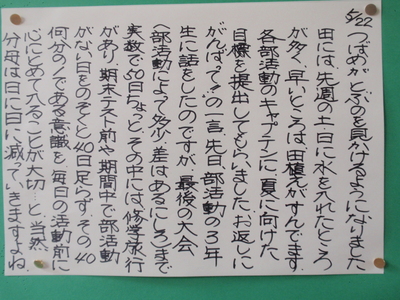 5/22
つばめがとぶのを見かけるようになりました
田には、先週の土・日に水を入れたところ
が多く、早いところは田植もすんでます。
各部活動のキャプテンに、夏に向けた
目標を提出してもらいました。お返しに
がんばって!!の一言。先日、部活動の3年
生に話をしたのですが、最後の大会
(部活動によって多少差はあるにしろ)まで
実数で50日ちょっと。その中には、修学旅行
があり、期末テスト前や期間中で部活動
がない日をのぞくと40日足らず。その40
何分の1である意識を、毎日の活動前に
心にとめて入ることが大切…と。当然
分母は日に日に減っていきますよね。